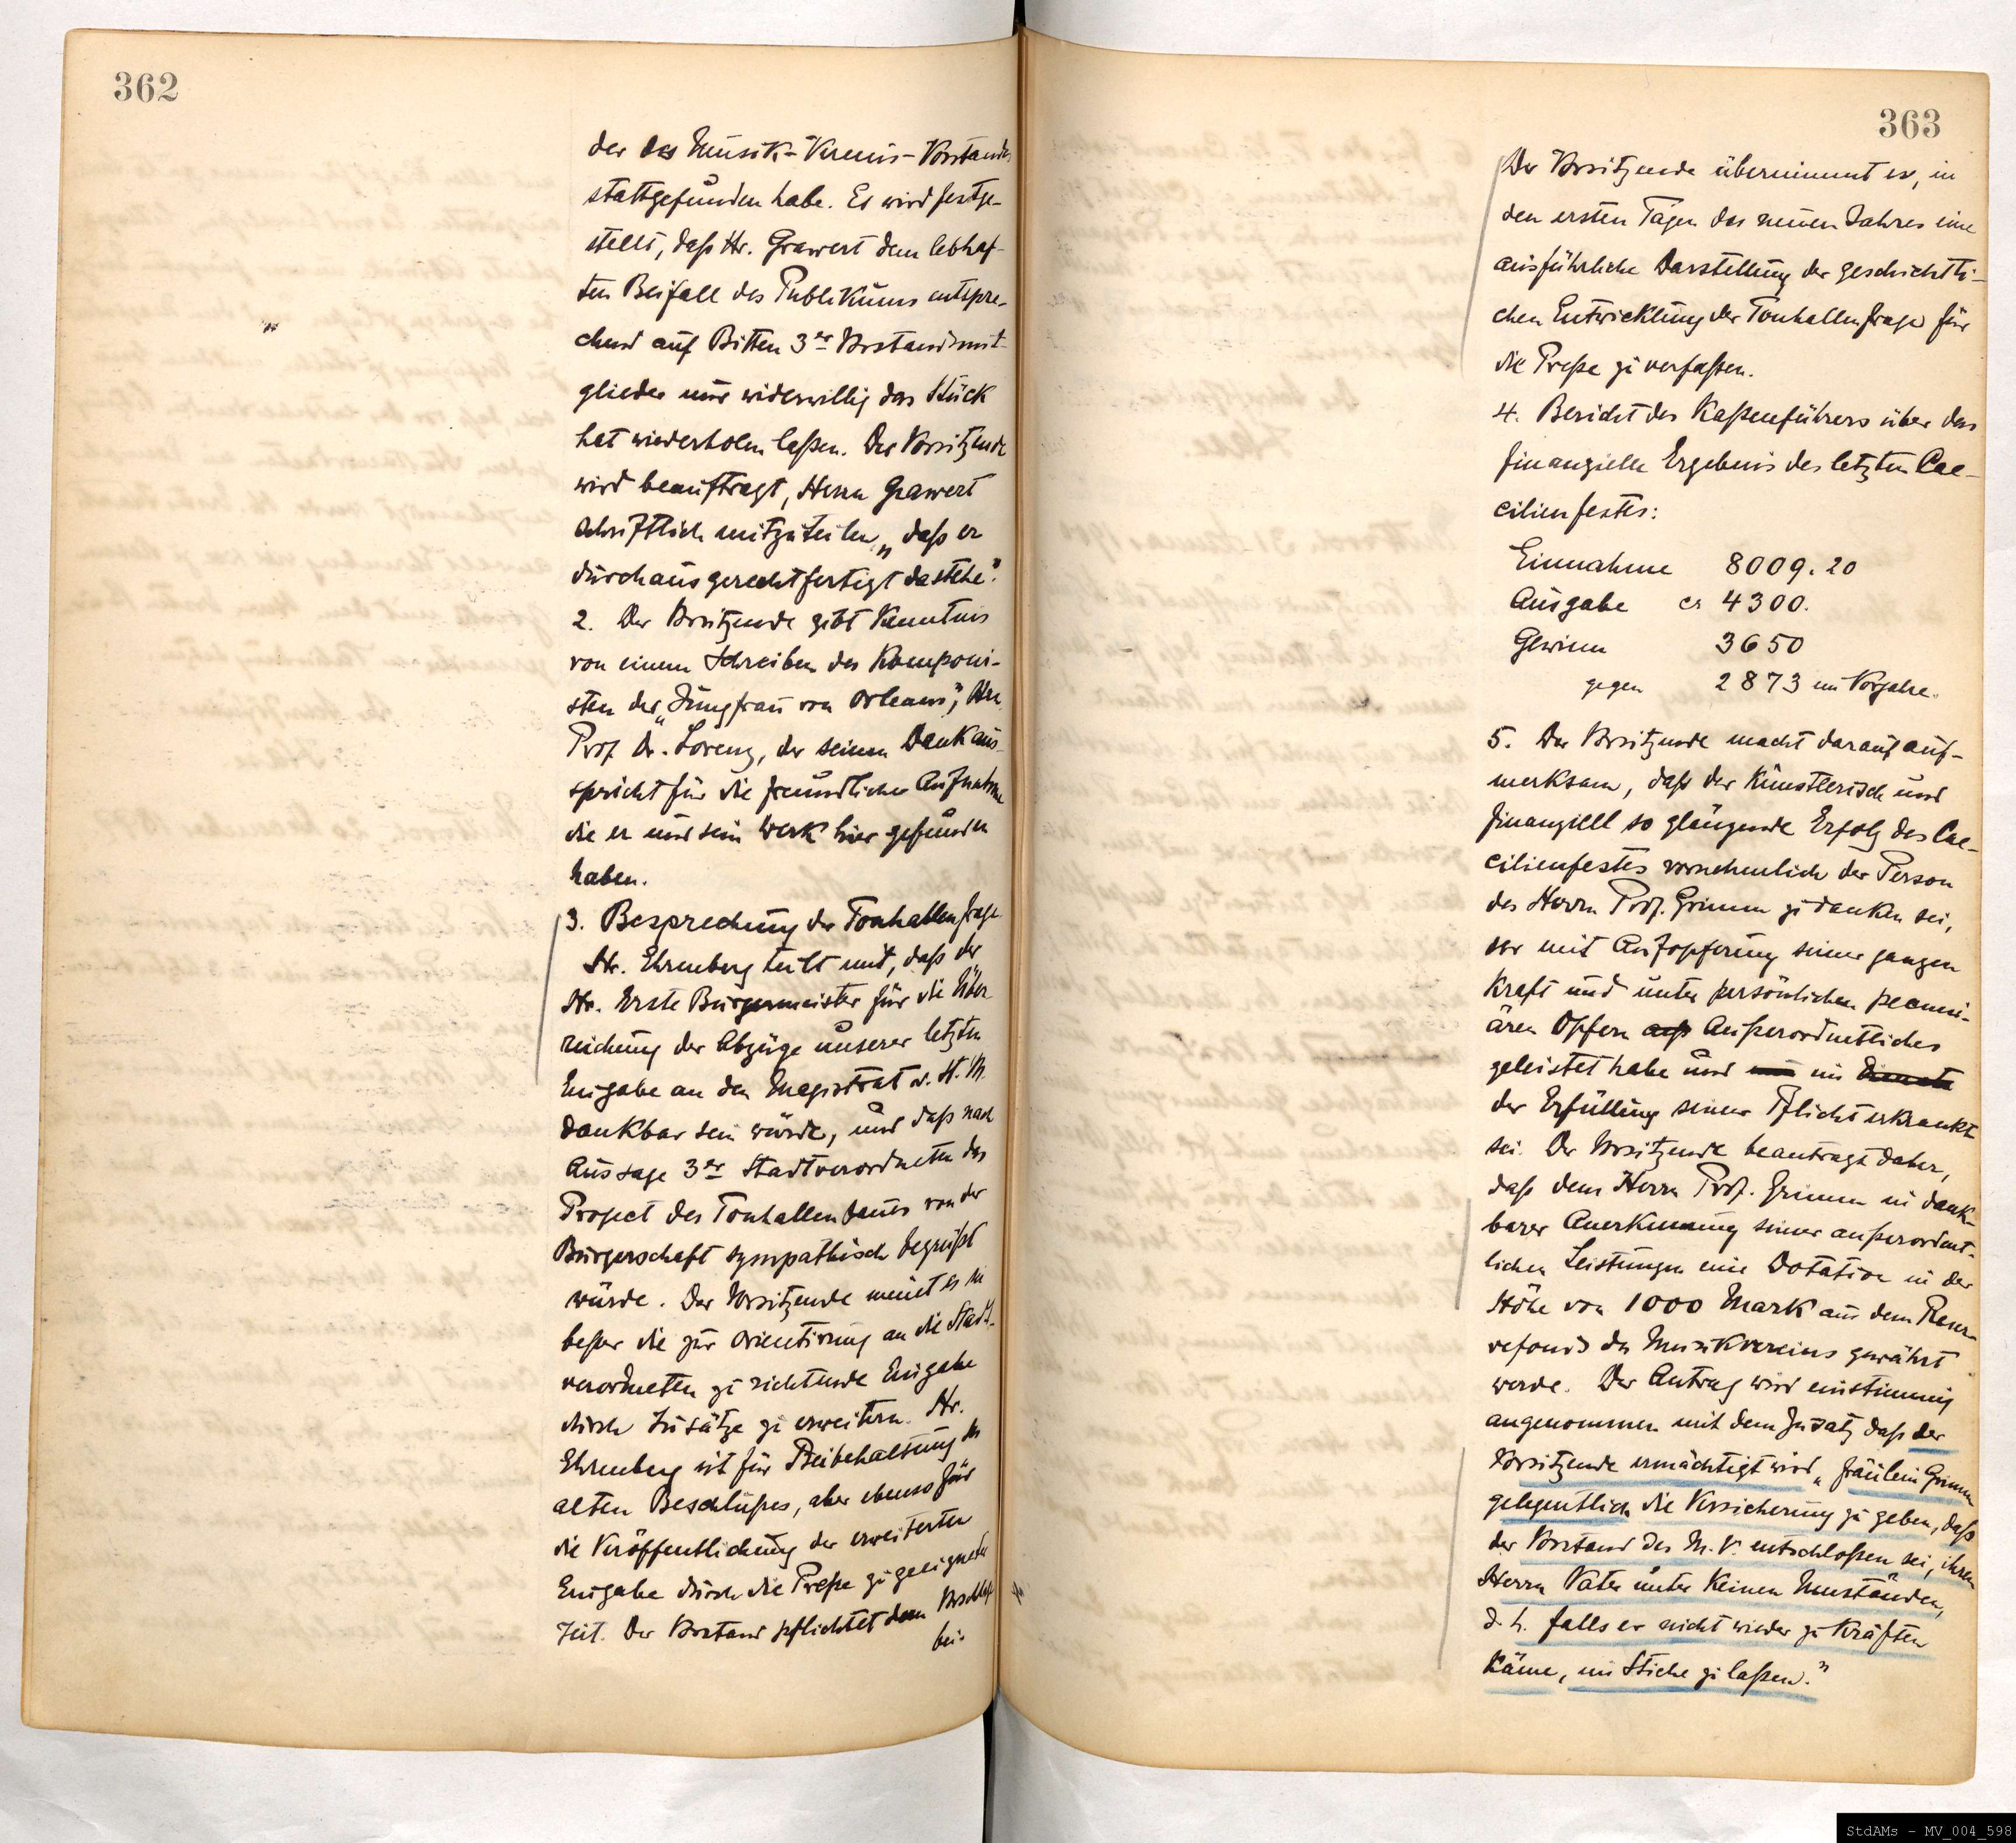 362
der des Musik-Vereins-Vorstandes
stattgefunden habe. Es wird festge-
stellt, daß Hr. Grawert dem lebhaf-
ten Beifall des Publikums entspre-
chend auf Bitten 3er Vorstandsmit-
glieder nur widerwillig das Stück
hat wiederholen laßen. Der Vorsitzende
wird beauftragt, Herrn Grawert
schriftlich mitzuteilen „daß er
durchaus gerechtfertigt dastehe“.
2. Der Vorsitzende gibt Kenntnis
von einem Schreiben des Komponi-
sten der „Jungfrau von Orleans“, Hrn.
Prof. Dr. Lorenz, der seinen Dank aus-
spricht für die freundliche Aufnahme
die er und sein Werk hier gefunden
haben.
3. Besprechung der Tonhallenfrage
Hr. Ehrenberg teilt mit, daß der
Hr. Erste Bürgermeister für die Über
reichung der Abzüge unserer letzten
Eingabe an den Magistrat d. St. M.
dankbar sein würde, und daß nach
Aussage 3er Stadtverordneten das
Project des Tonhallenbaues von der
Bürgerschaft sympathisch begrüßt
würde. Der Vorsitzende meint es sei
beßer die zur Orientirung an die Stadt-
verordneten zu richtende Eingabe
durch Zusätze zu erweitern. Hr.
Ehrenberg ist für Beibehaltung des
alten Beschlußes, aber ebenso für
die Veröffentlichung der erweiterten
Eingabe durch die Preße zu geeigneter
Zeit. Der Vorstand pflichtet dem Vorschlag
bei.
363
Der Vorsitzende übernimmt es, in
den ersten Tagen des neuen Jahres eine
ausführliche Darstellung der geschichtli-
chen Entwicklung der Tonhallenfrage für
die Preße zu verfaßen.
4. Bericht des Kaßenführers über das
finanzielle Ergebnis des letzten Cae-
cilienfestes:
Einnahme 8009.20
Ausgabe ca 4300.
Gewinn 3650
gegen 2873 im Vorjahre.
5. Der Vorsitzende macht darauf auf-
merksam, daß der künstlerisch und
finanziell so glänzende Erfolg des Cae-
cilienfestes vornehmlich der Person
des Herrn Prof. Grimm zu danken sei,
der mit Aufopferung seiner ganzen
Kraft und unter persönlichen pecuni-
ären Opfern auß Außerordentliches
geleistet habe und im Dienste
der Erfüllung seiner Pflicht erkrankt
sei. Der Vorsitzende beantragt daher,
daß dem Herrn Prof. Grimm in dank-
barer Anerkennung seiner außerordent-
lichen Leistungen eine Dotation in der
Höhe von 1000 Mark aus dem Reser-
vefonds des Musikvereins gewährt
werde. Der Antrag wird einstimmig
angenommen mit dem Zusatz daß der
Vorsitzende ermächtigt wird „Fräulein Grimm
gelegentlich die Versicherung zu geben, daß
der Vorstand des M.V. entschloßen sei, ihren
Herrn Vater unter keinen Umständen,
d. h. falls er nicht wieder zu Kräften
käme, im Stiche zu laßen.“
StdAMs - MV_004_598